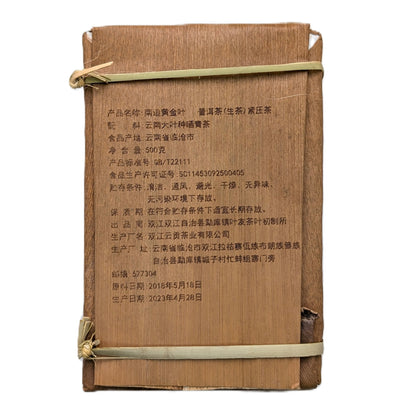 产品名称: 南迫黄金叶 普洱茶(生茶)紧压茶
配 料: 云南大叶种晒青茶
食品产地: 云南省临沧市
净 含 量: 500克
产品标准号: GB/T22111
食品生产许可证号: SC11453092500405
贮存条件: 清洁、通风、避光、干燥、无异味、
无污染环境下存放。
保 质 期: 在符合贮存条件下适宜长期存放。
出 品 商: 双江双江自治县勐库镇叶友茶叶初制所
生产厂名: 双江云贡茶业有限公司
生产厂 址: 云南省临沧市双江拉祜族佤族布朗族傣族
自治县勐库镇城子村忙蚌组寨门旁
邮编: 677304
原料日期: 2018年5月18日
生产日期: 2023年4月28日